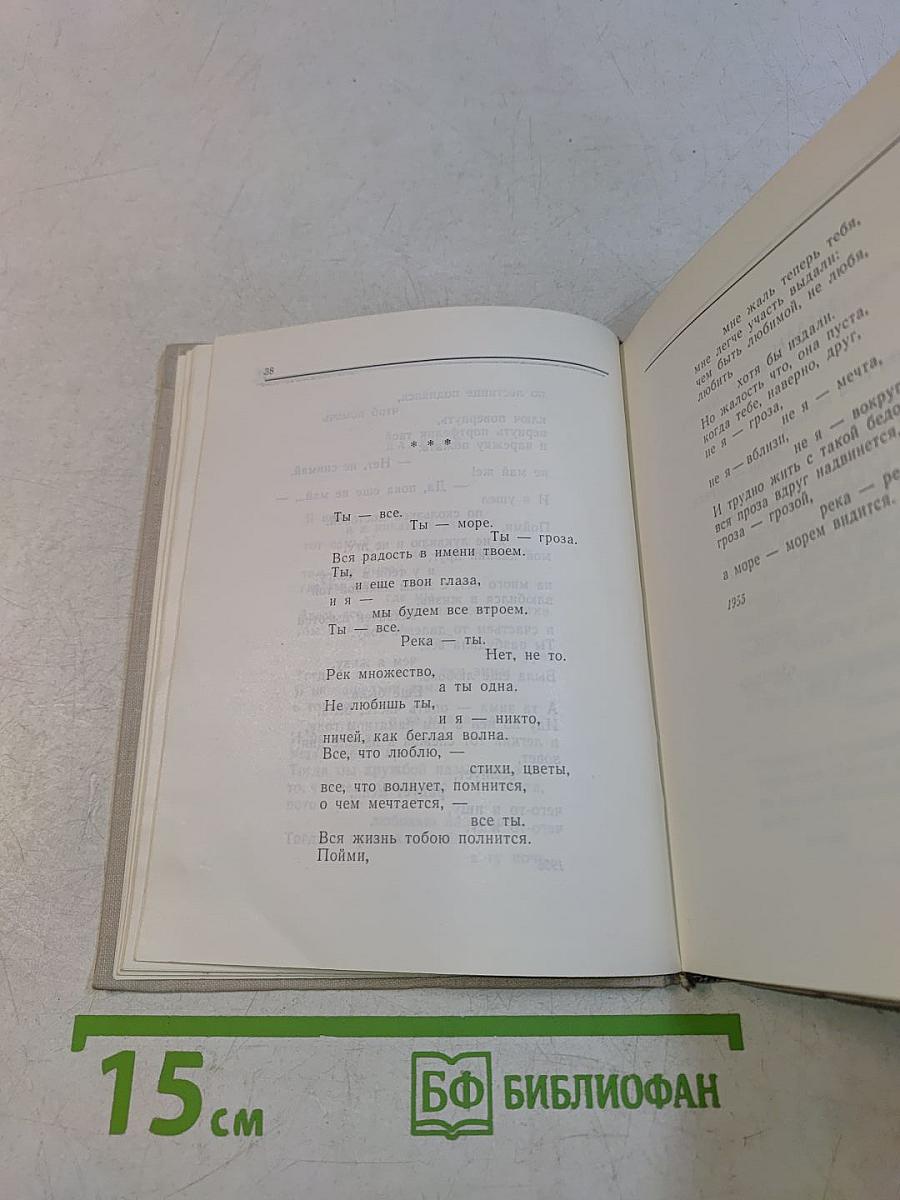 38
* * *
Ты — все.
Ты — море.
Ты — гроза.
Вся радость в имени твоем.
Ты,
и еще твои глаза,
и я —
мы будем все втроем.
Ты — все.
Река — ты.
Нет, не то.
Рек множество,
а ты одна.
Не любишь ты,
и я — никто,
ничей, как беглая волна.
Все, что люблю, —
стихи, цветы,
все, что волнует, помнится,
о чем мечтается, —
все ты.
Вся жизнь тобою полнится.
Пойми,
мне жаль теперь тебя,
мне легче участь выдали:
чем быть любимой, не любя,
любить
хотя бы издали.
Но жалость что, она пуста,
когда тебе, наверно, друг,
не я — гроза,
не я — мечта,
не я — вблизи,
не я — вокруг
И трудно жить с такой бедо
вся проза вдруг надвинется,
гроза — грозой,
река — ре
а море — морем видится.
1955
15 см
БФ БИБЛИОФАН